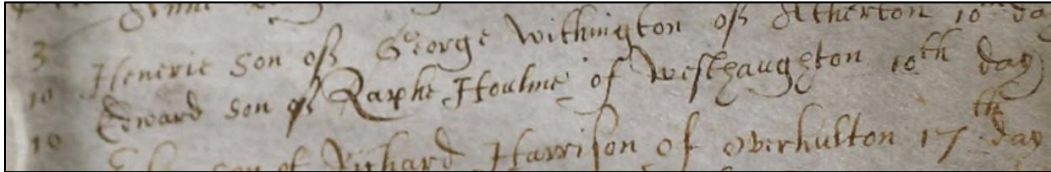 3 Henerie Son of George Withington of Atherton 10th da
10 Edward Son of Raphe Houlme of Westhaughton 10th day
10 son of Richard Harrison of Overhulton 17th day